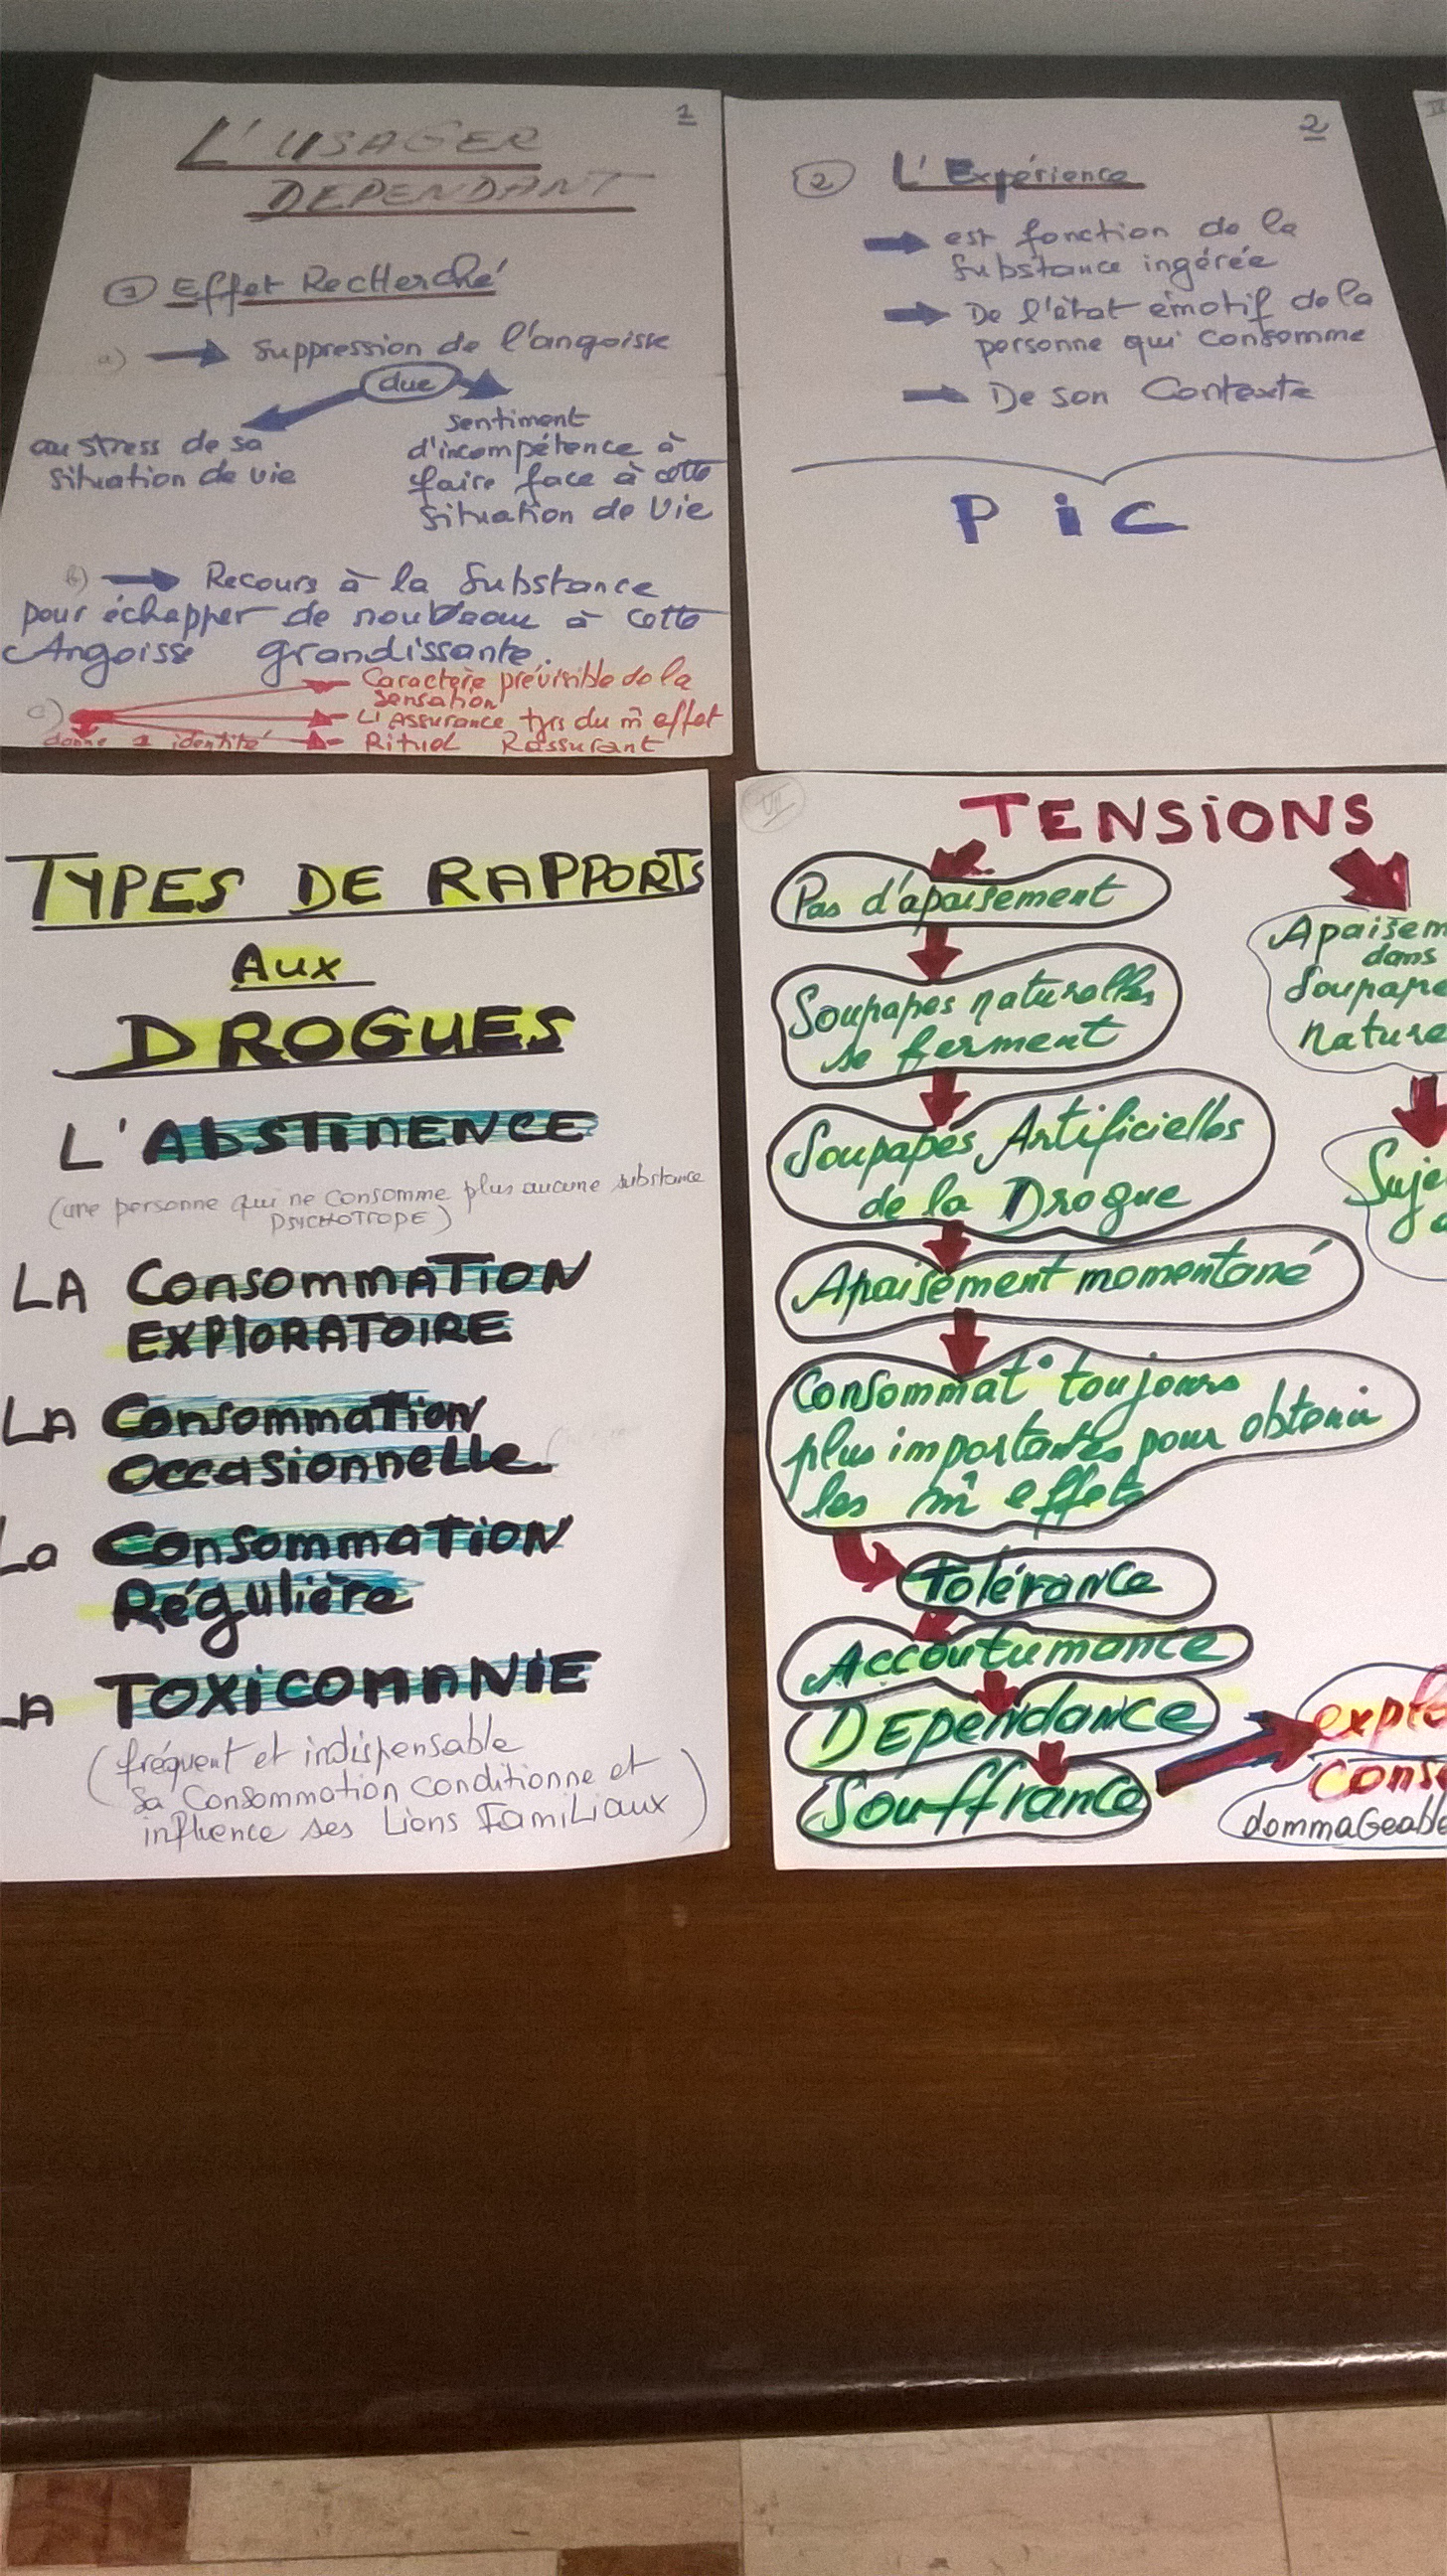 1
L'USAGER
DEPENDANT
1 Effet RecHerché
a) suppression de l'angoisse
due
au stress de sa
situation de vie
sentiment
d'incompétence à
faire face à cette
situation de Vie
b) Recours à la Substance
pour échapper de nouveau à cette
Angoisse grandissante.
c) Caractère prévisible de la
sensation
L'Assurance tjrs du m̂ effet
donne 1 identité Rituel Rassurant
2
2 L'Expérience
est fonction de la
Substance ingérée
De l'état émotif de la
personne qui consomme
De son Contexte
PiC
TYPES DE RAPPORTS
Aux
DROGUES
L'ABSTINENCE
(une personne qui ne consomme plus aucune substance
PSYCHOTROPE)
LA CONSOMMATION
EXPLORATOIRE
LA Consommation
Occasionnelle
La Consommation
Régulière
LA TOXICOMANIE
(fréquent et indispensable
sa Consommation conditionne et
influence ses Liens FamiLiaux)
VII
TENSIONS
Pas d'apaisement
Soupapes naturelles
se ferment
Soupapes Artificielles
de la Drogue
Apaisement momentané
Consommat° toujours
plus importantes pour obtenir
les m̂ effets
Tolérance
Accoutumance
DEpendance
Souffrance
Apaisem
dans
Soupape
nature
Suje
explo
Conso
dommaGeable